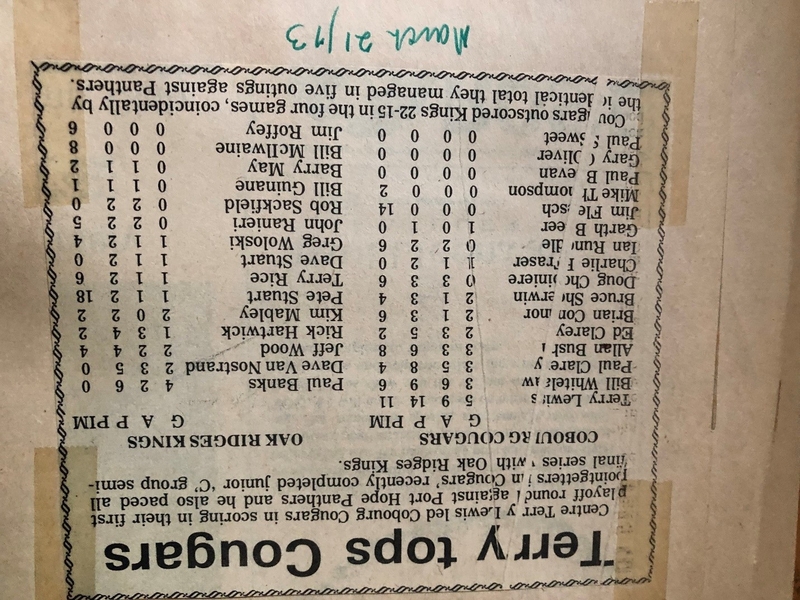 Terry tops Cougars
Centre Terry Lewis led Cobourg Cougars in scoring in their first
playoff round against Port Hope Panthers and he also paced all
pointgetters in Cougars' recently completed junior 'C' group semi-
final series with Oak Ridges Kings.
COBOURG COUGARS
G A P PIM
Terry Lewis 5 9 14 11
Bill Whitelaw 3 6 9 6
Paul Clarey 3 5 8 4
Allan Bush 3 3 6 8
Ed Clarey 2 3 5 2
Brian Connor 2 1 3 6
Bruce Sherwin 2 1 3 4
Doug 0 3 3 6
Charlie Fraser 1 1 2 0
Ian Rundle 0 2 2 6
Garth Beer 1 0 1 0
Jim Flesch 0 0 0 14
Mike Thompson 0 0 0 2
Paul Bevan 0 0 0 0
Gary Oliver 0 0 0 0
Paul Sweet 0 0 0 0
OAK RIDGES KINGS
G A P PIM
Paul Banks 4 2 6 0
Dave Van Nostrand 2 3 5 0
Jeff Wood 2 2 4 4
Rick Hartwick 1 3 4 2
Kim Mabley 2 0 2 2
Pete Stuart 1 1 2 18
Terry Rice 1 1 2 6
Dave Stuart 1 1 2 0
Greg Woloski 1 1 2 4
John Ranieri 0 2 2 5
Rob Sackfield 0 2 2 0
Bill Guinane 0 1 1 1
Barry May 0 1 1 2
Bill McIlwaine 0 0 0 8
Jim Roffey 0 0 0 6
Cougars outscored Kings 22-15 in the four games, coincidentally by
the identical total they managed in five outings against Panthers.
March 21/73